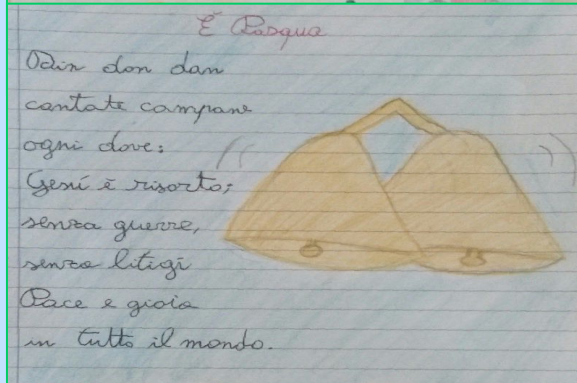 È Pasqua
Din don dan
cantate campane
ogni dove:
Gesù è risorto;
senza guerre,
senza litigi
Pace e gioia
in tutto il mondo.